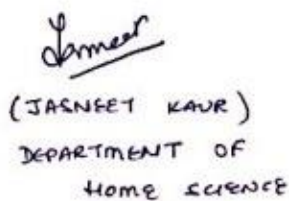 (JASNEET KAUR)
DEPARTMENT OF
HOME SCIENCE